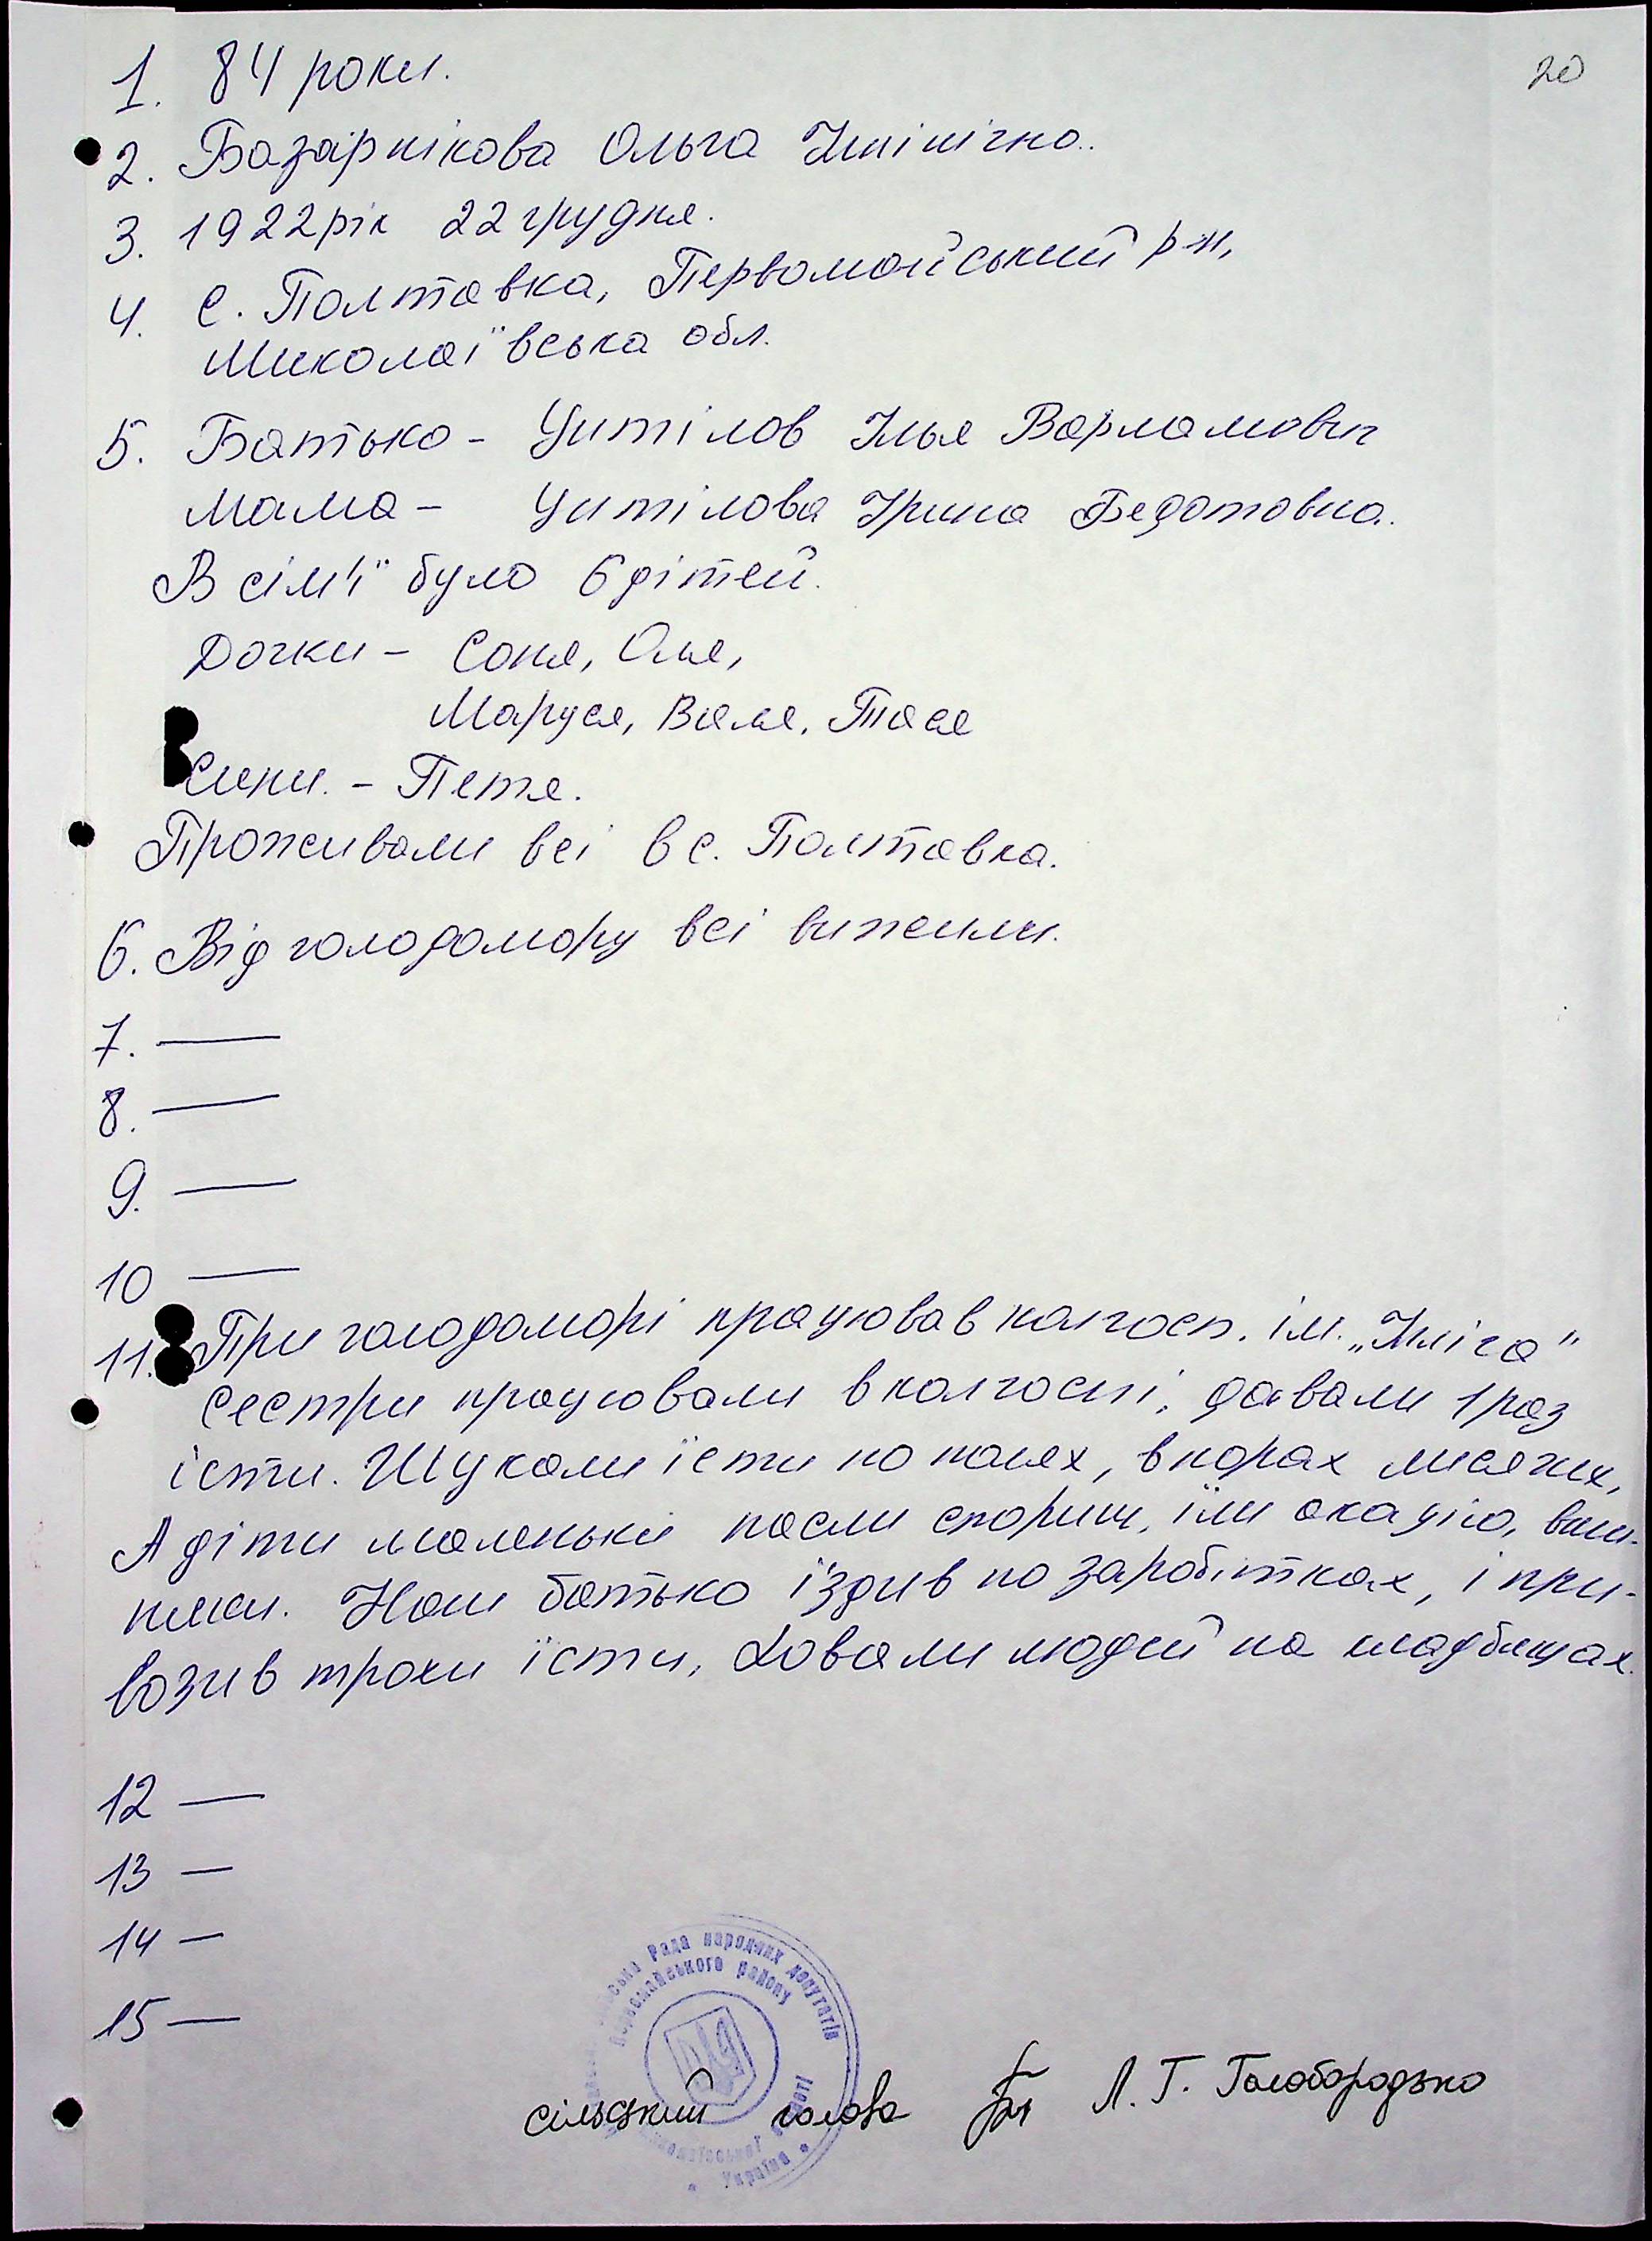 20
1. 84 роки.
2. Базарнікова Ольга Іллінічна.
3. 1922 рік 22 грудня.
4. с. Полтавка, Первомайський р-н,
Миколаївська обл.
5. Батько - Унтілов Ілья Варламович
Мама - Унтілова Ірина Федотовна.
В сім'ї було 6 дітей.
Дочки - Соня, Оля,
Маруся, Валя, Тася
Сини. - Петя.
Проживали всі в с. Полтавка.
6. Від голодомору всі вижили.
7. —
8. —
9. —
10 —
11. При голодоморі працював колгосп. ім. „Ілліча"
Сестри працювали в колгоспі, давали 1 раз
їсти. Шукали їсти по полях, в норах мисячих,
А діти маленькі пасли спориш, їли акацію, виш-
пльки. Наш батько їздив по заробітках, і при-
возив трохи їсти, Ховали людей на кладбищах.
12 —
13 —
14 —
15 —
сільська Рада народних депутатів
Первомайського району
Миколаївської області
* Україна *
сільський голова Л. Г. Голобородько